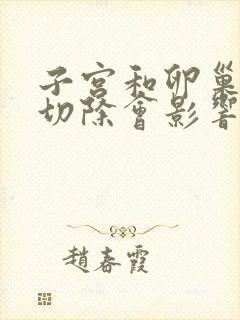 子宮和卵巢
切除會影響
趙春霞